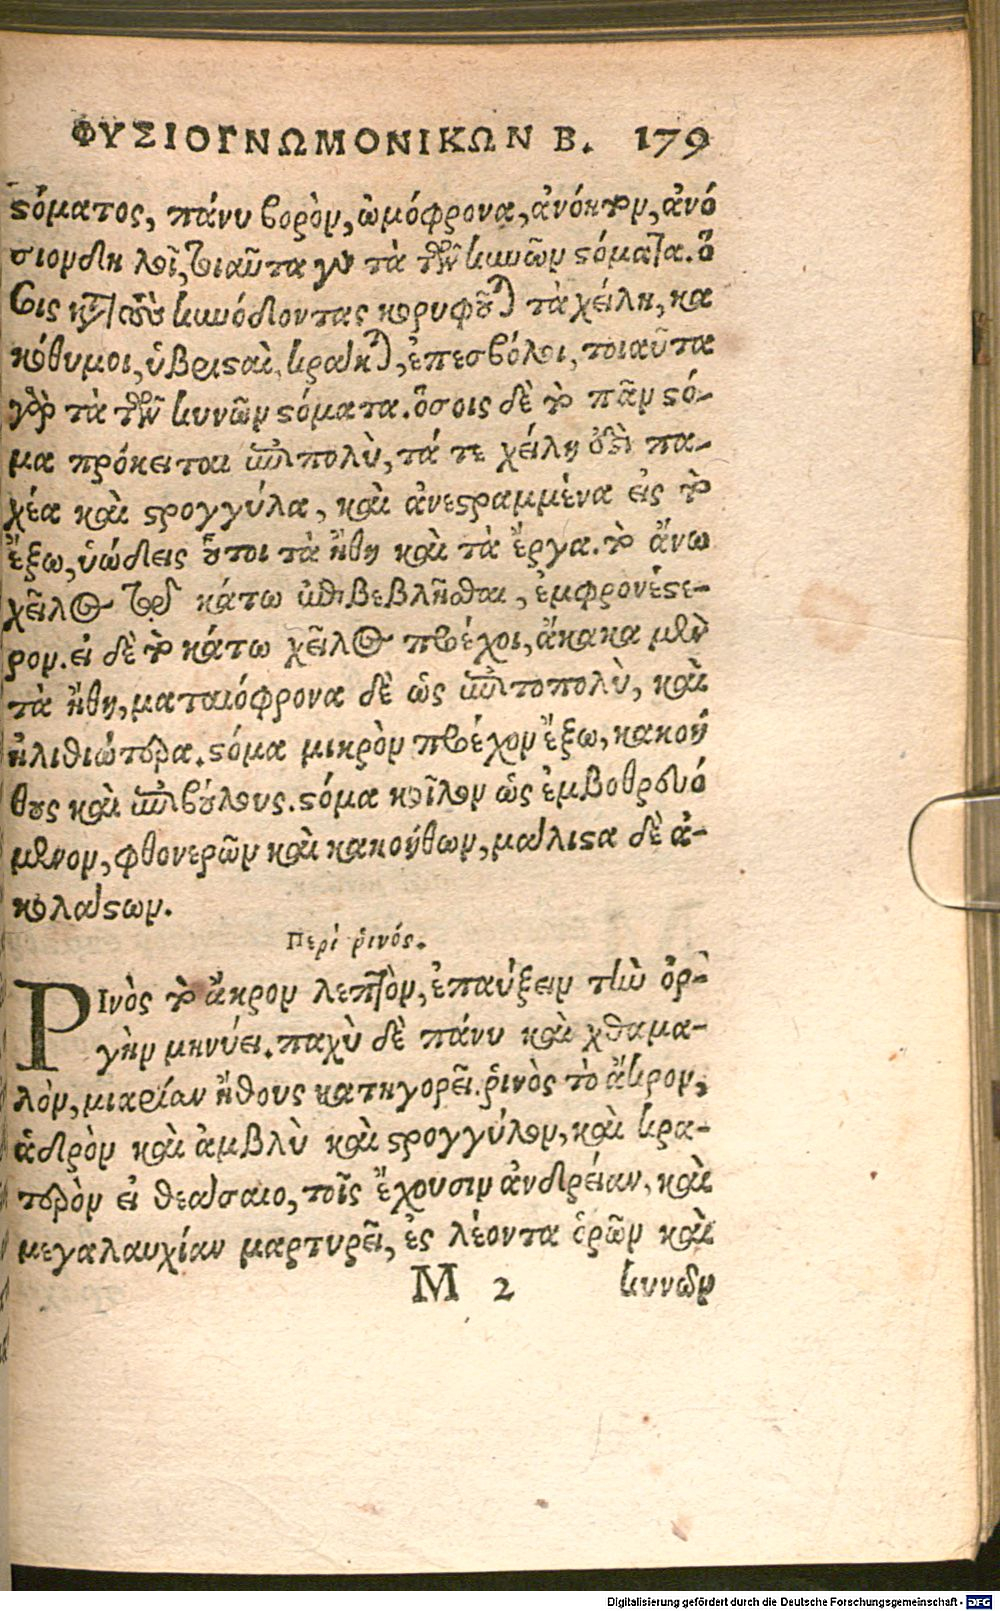 ΦΥΣΙΟΓΝΩΜΟΝΙΚΩΝ Β. 179
στόματος, πάνυ βορὸν, ὠμόφρονα, ἀνόητον, ἀνό
σιον δηλοῖ, τοιαῦτα γὰρ τὰ τῶν κυνῶν στόματα. ὅ
σοις κατὰ τοὺς κυνόδοντας κορυφοῦται τὰ χείλη, κα
κόθυμοι, ὑβρισταὶ, κράκται, ἐπεσβόλοι, τοιαῦτα
γὰρ τὰ τῶν κυνῶν στόματα. ὅσοις δὲ τὸ πᾶν στό-
μα πρόκειται ἐπιπολὺ, τά τε χείλη ἐστὶ πα-
χέα καὶ στρογγύλα, καὶ ἀνεστραμμένα εἰς τὸ
ἔξω, ὑώδεις οὗτοι τὰ ἤθη καὶ τὰ ἔργα. τὸ ἄνω
χεῖλος τοῦ κάτω ἐπιβεβλῆσθαι, ἐμφρονέστε-
ρον. εἰ δὲ τὸ κάτω χεῖλος προέχοι, ἄκακα μὲν
τὰ ἤθη, ματαιόφρονα δὲ ὡς ἐπιτοπολὺ, καὶ
ἠλιθιώτερα. στόμα μικρὸν προέχον ἔξω, κακοή
θους καὶ ἐπιβούλους. στόμα κοῖλον ὡς ἐμβοθρευό
μενον, φθονερῶν καὶ κακοήθων, μάλιστα δὲ ἀ-
κολάστων.
Περὶ ῥινός.
ΡΙνὸς τὸ ἄκρον λεπτὸν, ἐπαύξειν τὴν ὀρ-
γὴν μηνύει. παχὺ δὲ πάνυ καὶ χθαμα-
λὸν, μιαρίαν ἤθους κατηγορεῖ. ῥινὸς τὸ ἄκρον,
ἁδρὸν καὶ ἀμβλὺ καὶ στρογγύλον, καὶ κρα-
τερὸν εἰ θεάσαιο, τοῖς ἔχουσιν ἀνδρείαν, καὶ
μεγαλαυχίαν μαρτυρεῖ, ἐς λέοντα ὁρῶν καὶ
M 2 κυνῶν
Digitalisierung gefördert durch die Deutsche Forschungsgemeinschaft - DFG